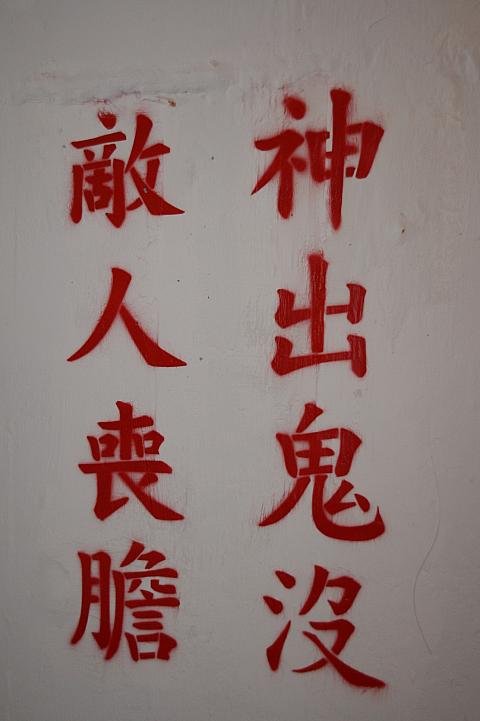 神出鬼沒
敵人喪膽